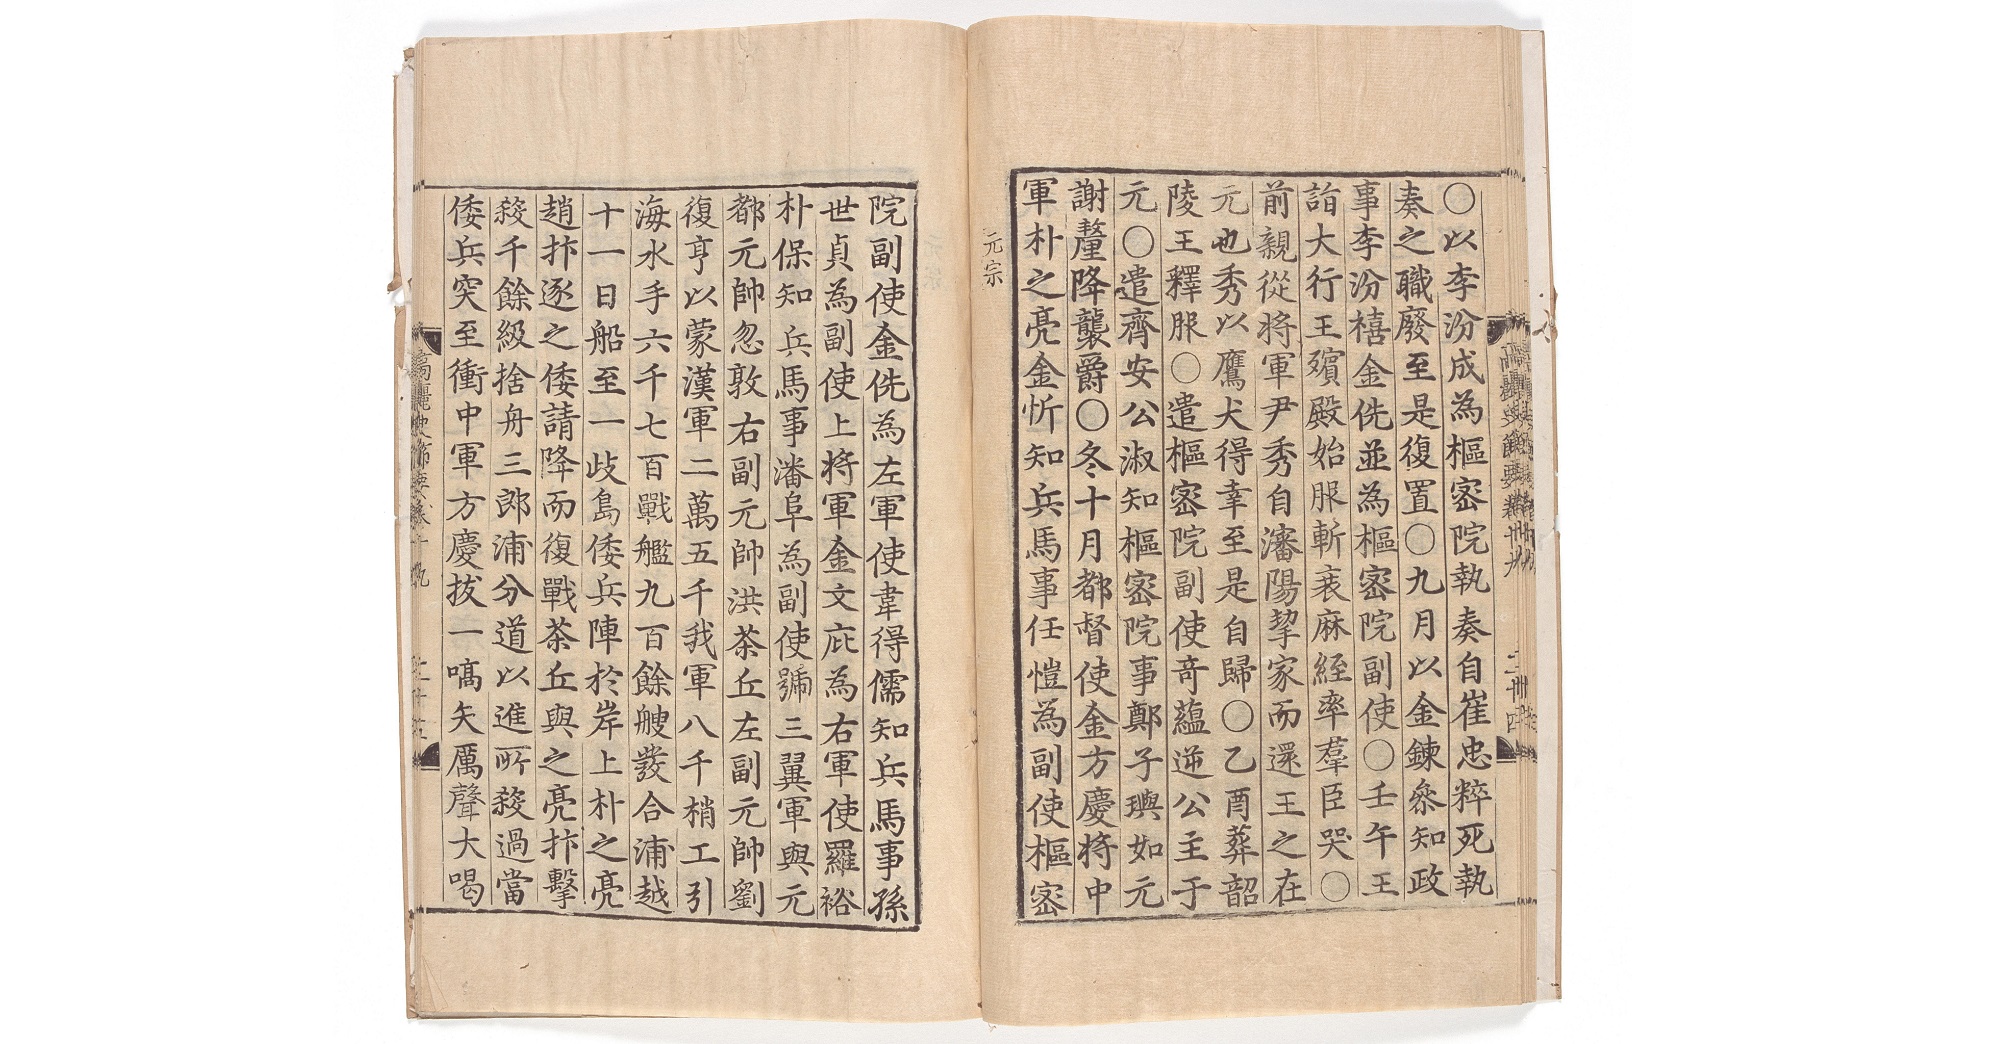 ○以李汾成為樞密院執奏自崔忠粹死執
奏之職廢至是復置○九月以金鍊叅知政
事李汾禧金侁並為樞密院副使○壬午王
詣大行王殯殿始服斬衰麻絰率羣臣哭○
前親從將軍尹秀自瀋陽挈家而還王之在
元也秀以鷹犬得幸至是自歸○乙酉葬韶
陵王釋服○遣樞密院副使奇蘊逆公主于
元○遣齊安公淑知樞密院事鄭子璵如元
謝釐降襲爵○冬十月都督使金方慶將中
軍朴之亮金忻知兵馬事任愷為副使樞密
元宗
院副使金侁為左軍使韋得儒知兵馬事孫
世貞為副使上將軍金文庇為右軍使羅裕
朴保知兵馬事潘阜為副使號三翼軍與元
都元帥忽敦右副元帥洪茶丘左副元帥劉
復亨以蒙漢軍二萬五千我軍八千梢工引
海水手六千七百戰艦九百餘艘發合浦越
十一日船至一歧島倭兵陣於岸上朴之亮
趙抃逐之倭請降而復戰茶丘與之亮抃擊
殺千餘級捨舟三郎浦分道以進所殺過當
倭兵突至衝中軍方慶拔一嗃矢厲聲大喝